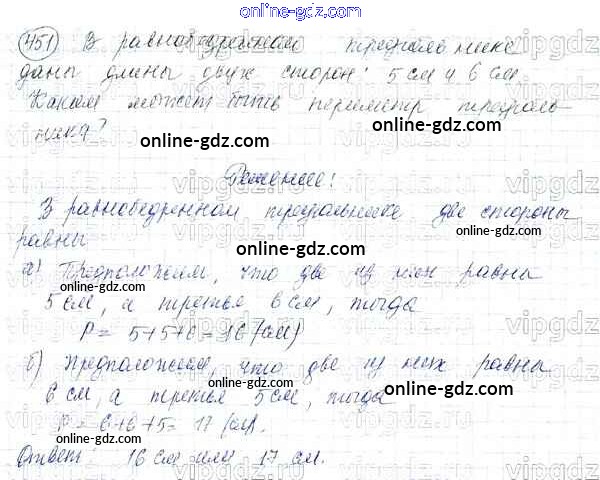 online-gdz.com
451) В равнобедренном треугольнике
даны длины двух сторон: 5 см и 6 см.
Каким может быть периметр треуголь-
ника?
online-gdz.com
Решение:
В равнобедренном треугольнике две стороны
равны
online-gdz.com
а) Предположим, что две из них равны
5 см, а третья 6 см, тогда
online-gdz.com
P = 5+5+6 = 16 (см)
б) Предположим, что две из них равны
6 см, а третье 5 см, тогда
online-gdz.com
P = 6+6+5 = 17 (см).
online-gdz.com
Ответ: 16 см или 17 см.
online-gdz.com